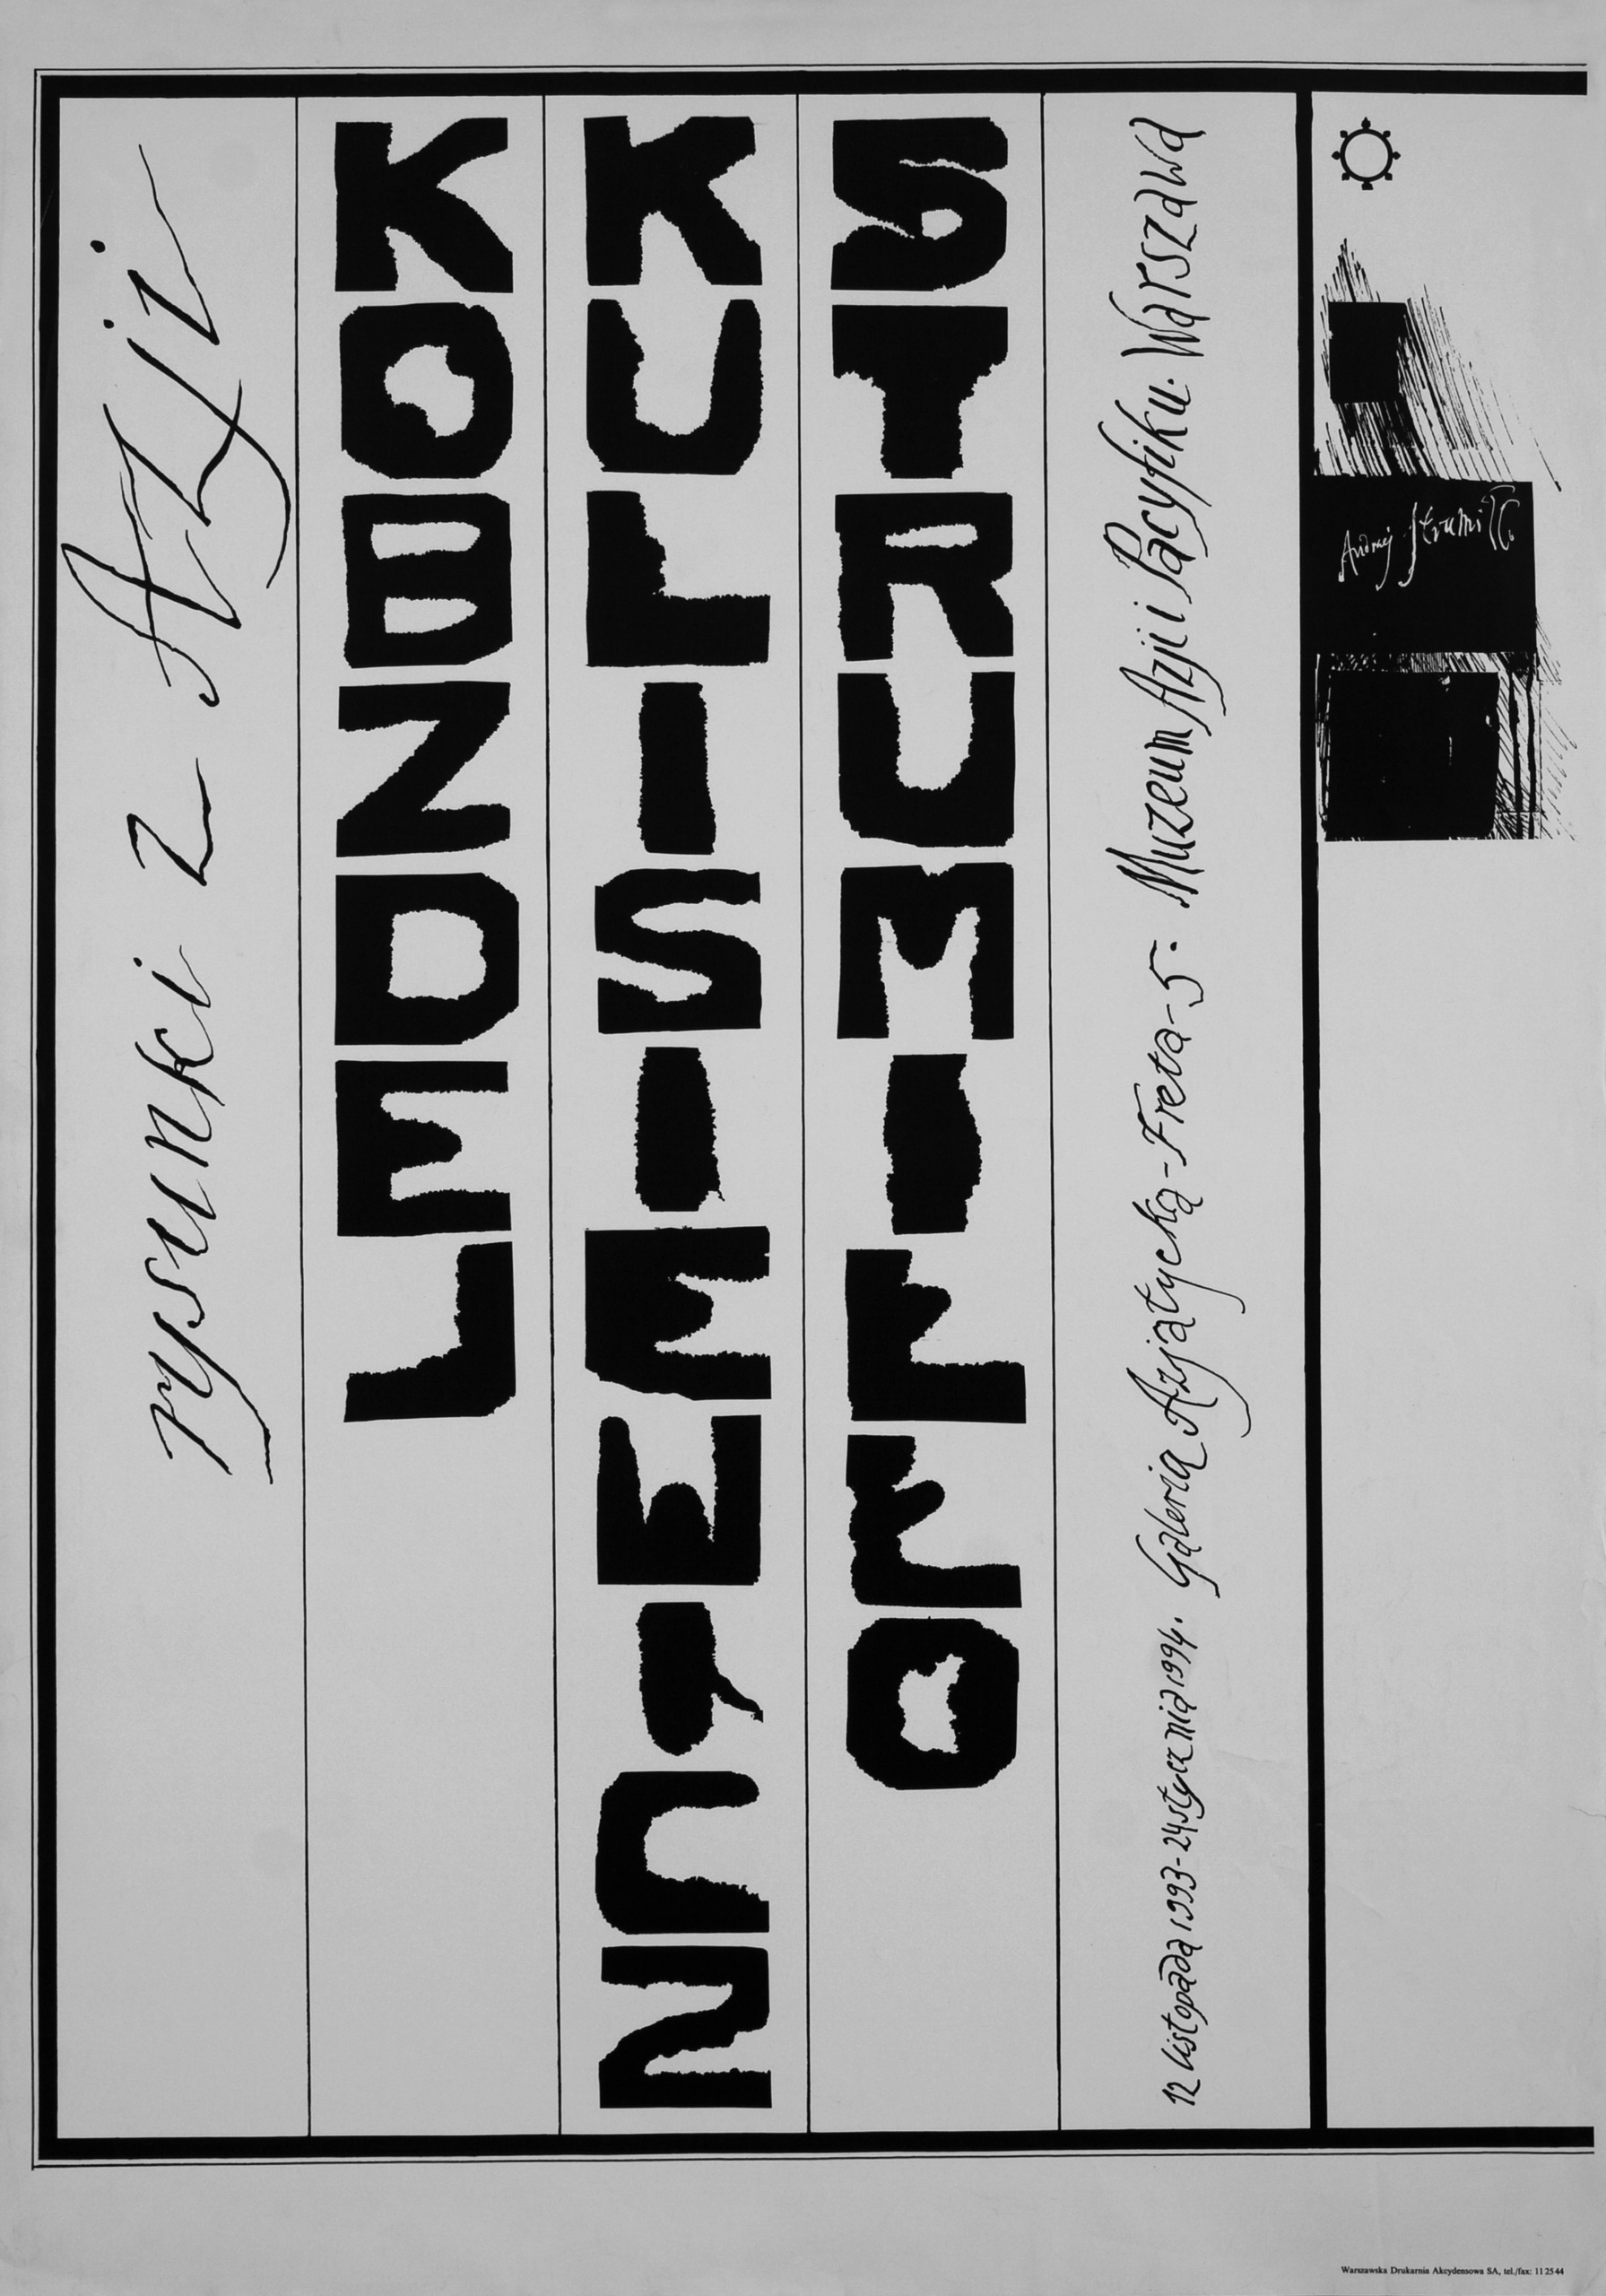 rysunki z Azji
KOBZDEJ
KULISIEWICZ
STRUMIŁŁO
12 listopada 1993 - 24 stycznia 1994. Galeria Azjatycka - Freta - 5. Muzeum Azji i Pacyfiku. Warszawa
Andrzej Strumiłło
Warszawska Drukarnia Akcydensowa SA, tel./fax: 11 25 44